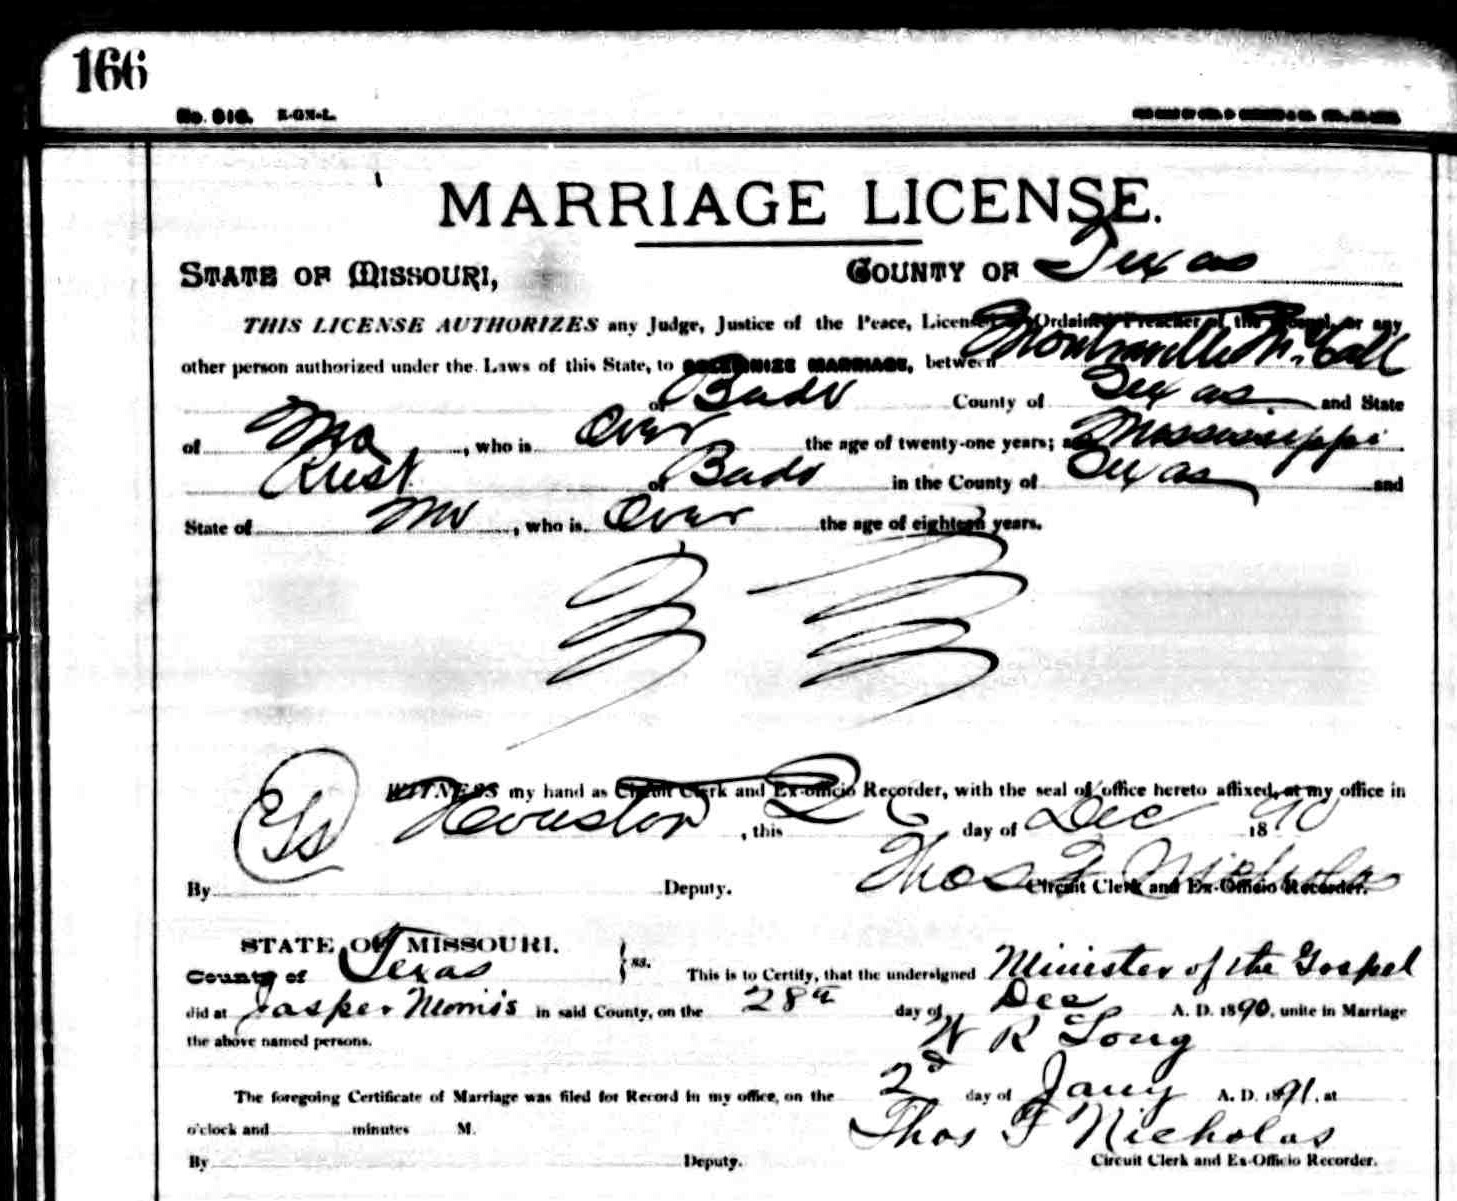 166
No. 316.
MARRIAGE LICENSE.
STATE OF MISSOURI, COUNTY OF Texas
THIS LICENSE AUTHORIZES any Judge, Justice of the Peace, Licensed or Ordained Preacher of the Gospel, or any
other person authorized under the Laws of this State, to SOLEMNIZE MARRIAGE, between Montraville McCall
of Bado County of Texas and State
of Mo, who is Over the age of twenty-one years; and Mississippi
of Bado in the County of Texas and
State of Mo, who is Over the age of eighteen years.
WITNESS my hand as Circuit Clerk and Ex-officio Recorder, with the seal of office hereto affixed, at my office in
Houston, this 26 day of Dec 1890
Thos F Nicholas
By Deputy. Circuit Clerk and Ex-Officio Recorder.
STATE OF MISSOURI.
County of Texas } ss. This is to Certify, that the undersigned Minister of the Gospel
did at Jasper Morris in said County, on the 28th day of Dec A. D. 1890, unite in Marriage
the above named persons. W R Long
The foregoing Certificate of Marriage was filed for Record in my office, on the 2d day of Jany A. D. 1891, at
o'clock and minutes M. Thos F Nicholas
By Deputy. Circuit Clerk and Ex-Officio Recorder.